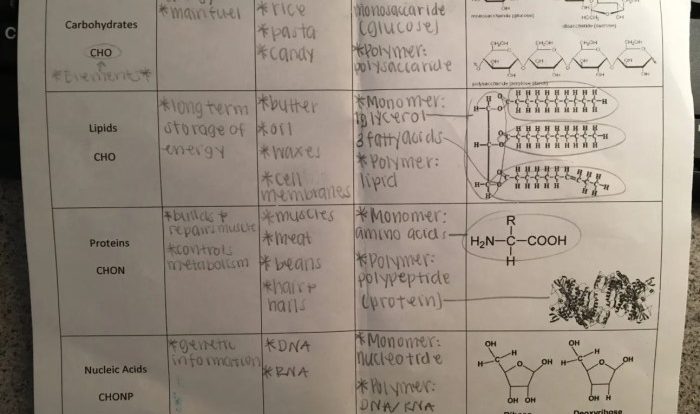 Carbohydrates
CHO
*Element*
*main fuel
*rice
*pasta
*candy
monosaccaride
(glucose)
*Polymer:
polysaccaride
Lipids
CHO
*long term
storage of
energy
*butter
*oil
*waxes
*cell
membranes
*Monomer:
glycerol
3 fatty acids
*Polymer:
lipid
Proteins
CHON
*builds &
repairs muscle
*controls
metabolism
*muscles
*meat
*beans
*hair &
nails
*Monomer:
amino acids
*Polymer:
polypeptide
(protein)
R
H₂N—C—COOH
H
Nucleic Acids
CHONP
*genetic
information
*DNA
*RNA
*Monomer:
nucleotide
*Polymer:
DNA/RNA
Ribose
Deoxyribose